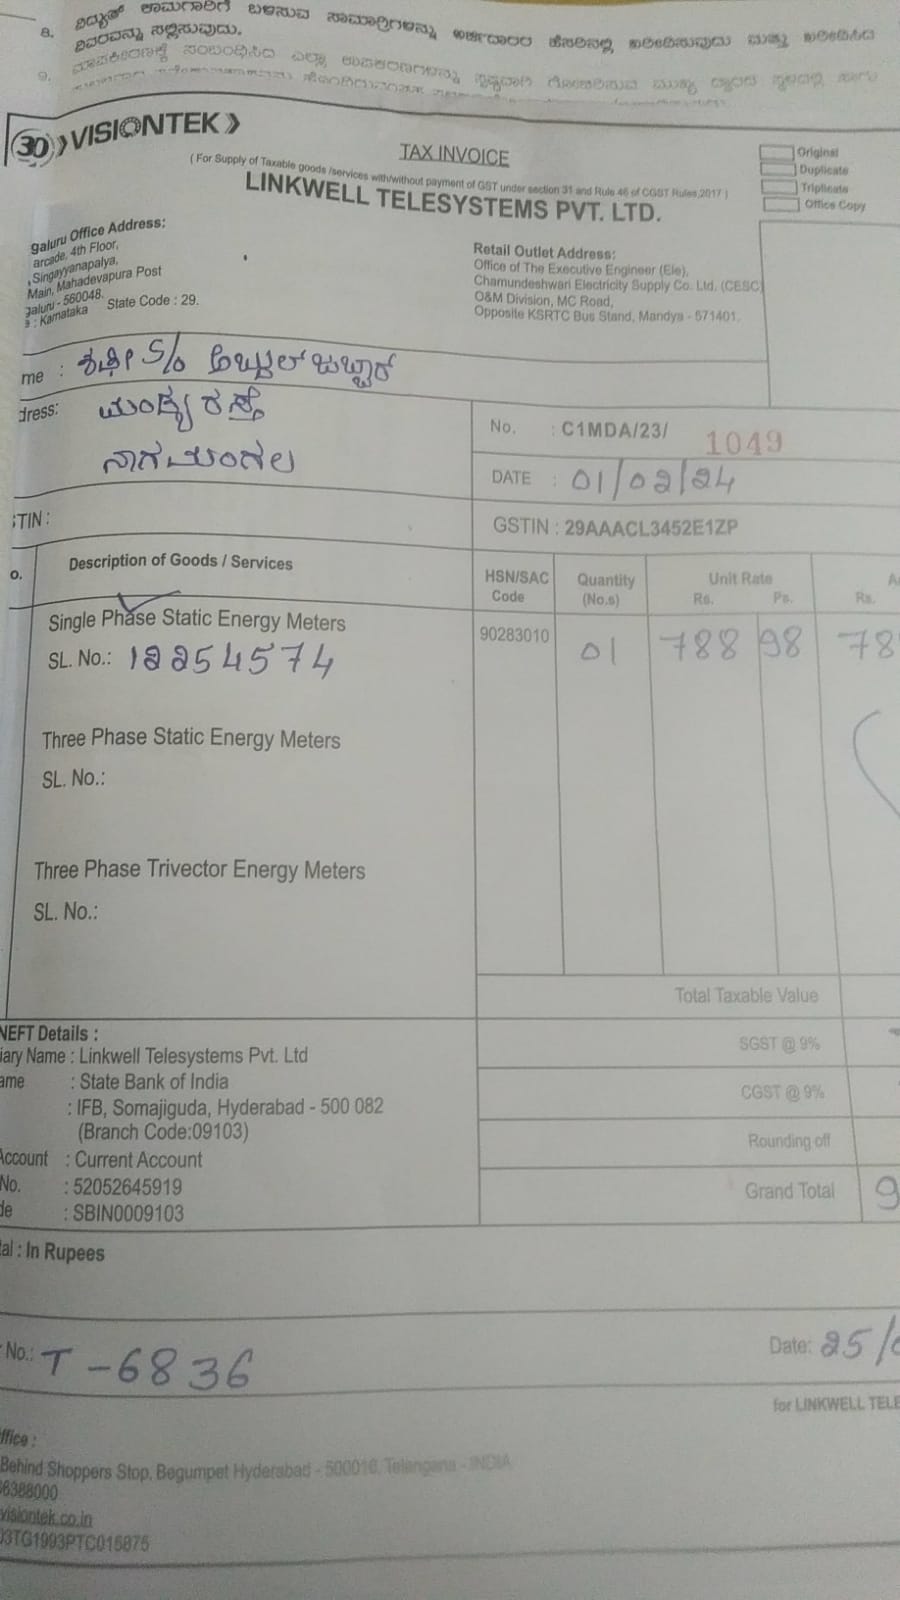 8. ವಿದ್ಯುತ್ ಕಾಮಗಾರಿಗೆ ಬಳಸುವ ಸಾಮಾಗ್ರಿಗಳನ್ನು ಅರ್ಜಿದಾರರ ಹೆಸರಿನಲ್ಲಿ ಖರೀದಿಸುವುದು ಮತ್ತು ಖರೀದಿಸಿದ
ವಿವರವನ್ನು ಸಲ್ಲಿಸುವುದು.
9. ಮಾಪಕೀಕರಣಕ್ಕೆ ಸಂಬಂಧಿಸಿದ ಎಲ್ಲಾ ಉಪಕರಣಗಳನ್ನು
30 VISIONTEK
TAX INVOICE
( For Supply of Taxable goods /services with/without payment of GST under section 31 and Rule 46 of CGST Rules,2017 )
LINKWELL TELESYSTEMS PVT. LTD.
Original
Duplicate
Triplicate
Office Copy
galuru Office Address:
arcade, 4th Floor,
Singayyanapalya,
Main, Mahadevapura Post
galuru - 560048.
: Karnataka State Code : 29.
Retail Outlet Address:
Office of The Executive Engineer (Ele),
Chamundeshwari Electricity Supply Co. Ltd. (CESC)
O&M Division, MC Road,
Opposite KSRTC Bus Stand, Mandya - 571401.
me : ಶಫೀ S/o ಅಬ್ದುಲ್ ಜಬ್ಬಾರ್
dress: ಮಂಡ್ಯ ರಸ್ತೆ
ನಾಗಮಂಗಲ
No. : C1MDA/23/ 1049
DATE : 01/02/24
STIN :
GSTIN : 29AAACL3452E1ZP
o. Description of Goods / Services HSN/SAC Code Quantity (No.s) Unit Rate Rs. Ps. Rs.
Single Phase Static Energy Meters 90283010 01 788 98 78
SL. No.: 12254574
Three Phase Static Energy Meters
SL. No.:
Three Phase Trivector Energy Meters
SL. No.:
Total Taxable Value
SGST @ 9%
CGST @ 9%
Rounding off
Grand Total 9
NEFT Details :
iary Name : Linkwell Telesystems Pvt. Ltd
ame : State Bank of India
: IFB, Somajiguda, Hyderabad - 500 082
(Branch Code:09103)
Account : Current Account
No. : 52052645919
de : SBIN0009103
tal : In Rupees
No.: T-6836
Date: 25/
for LINKWELL TELE
ffice :
Behind Shoppers Stop, Begumpet Hyderabad - 500016, Telangana - INDIA
66388000
visiontek.co.in
03TG1993PTC015875